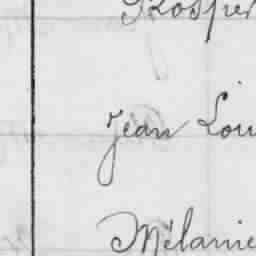 Prosper
Jean Lou
Mélanie